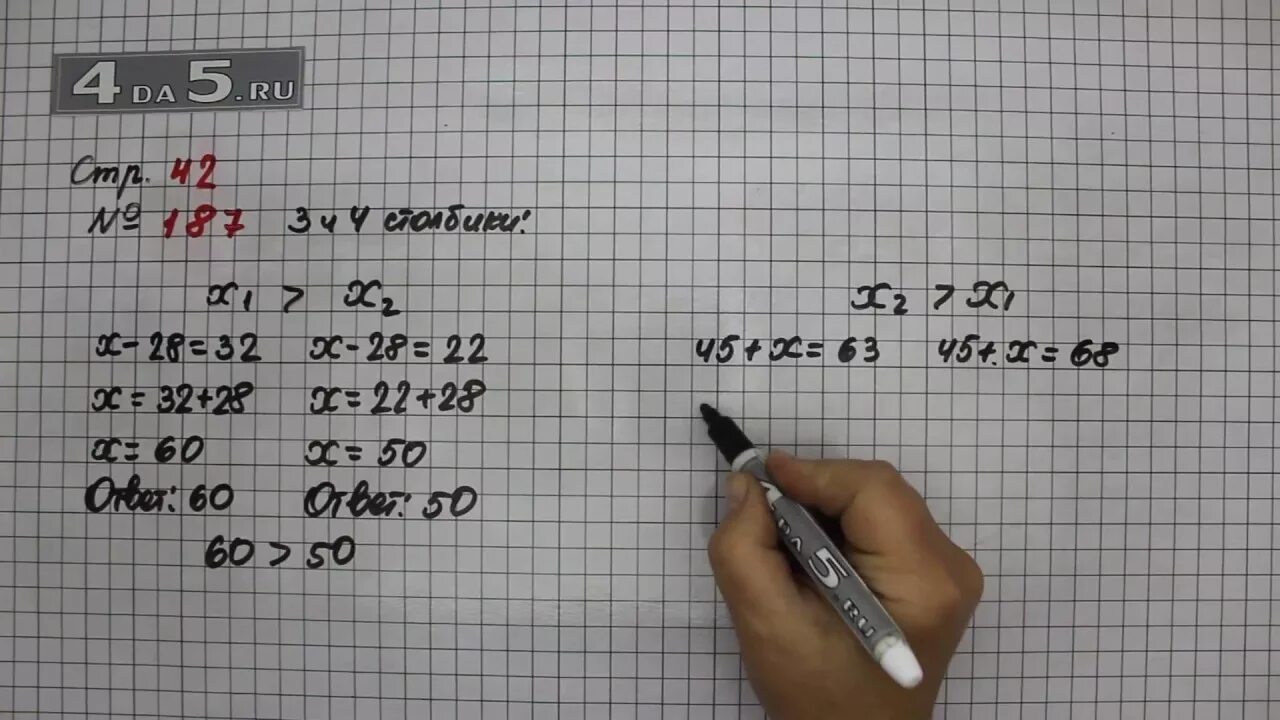 4 DA 5.RU
Стр. 42
№ 187 3 и 4 столбики:
x₁ > x₂
x - 28 = 32 x - 28 = 22
x = 32 + 28 x = 22 + 28
x = 60 x = 50
Ответ: 60 Ответ: 50
60 > 50
x₂ > x₁
45 + x = 63 45 + x = 68
4 DA 5.RU